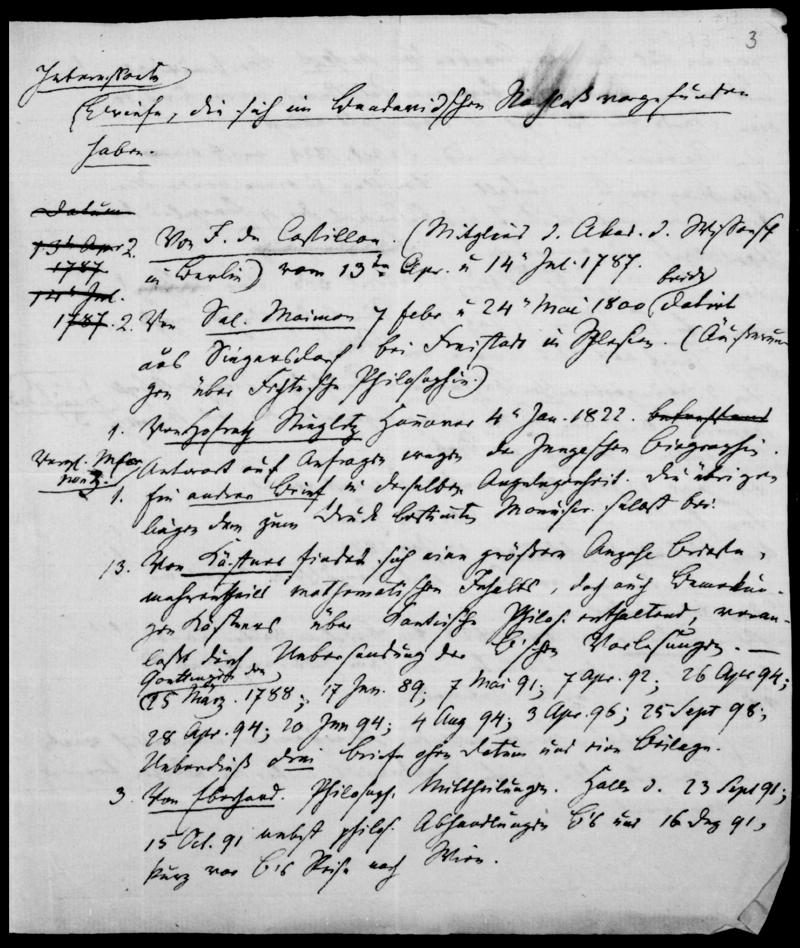 3
Briefe, die sich im Bendavidschen Nachlaß vorgefunden
haben.
Datum
13t Apr 2. Von F. de Castillon. (Mitglied d. Akad. d. Wissensch
1787 in Berlin) vom 13ten Apr. u 14t Jul. 1787.
14t Jul. beide
1787. 2. Von Sal. Maimon 7 febr u 24t Mai 1800 (datirt
aus Siegersdorf bei Freistadt in Schlesien. (Äußerun
gen über Fichtesche Philosophie.)
1. Von Hofrath Stieglitz Hanover 4t Jan. 1822.
Antwort auf Anfragen wegen der Biographie.
1. Ein andrer Brief in derselben Angelegenheit. Die übrigen
liegen dem zum Druck bestimmten Manuscr. selbst bei.
13. Von Kästner findet sich eine größere Anzahl Briefe,
mehrentheils mathematischen Inhalts, doch auch Bemerkun-
gen Kästners über Kantische Philos. enthaltend, veran-
laßt durch Uebersendung der B'schen Vorlesungen. —
Goettingen den
(25 März. 1788; 17 Jun. 89; 7 Mai 91; 7 Apr. 92; 26 Apr 94;
28 Apr. 94; 20 Jun 94; 4 Aug 94; 3 Apr. 96; 25 Sept 98;
Ueberdieß drei Briefe ohne Datum und eine Beilage.
3. Von Eberhard. Philosoph. Mittheilungen. Halle d. 23 Sept 91;
15 Oct. 91 nebst philos. Abhandlungen B's und 16 Dez 91,
kurz vor B's Reise nach Wien.